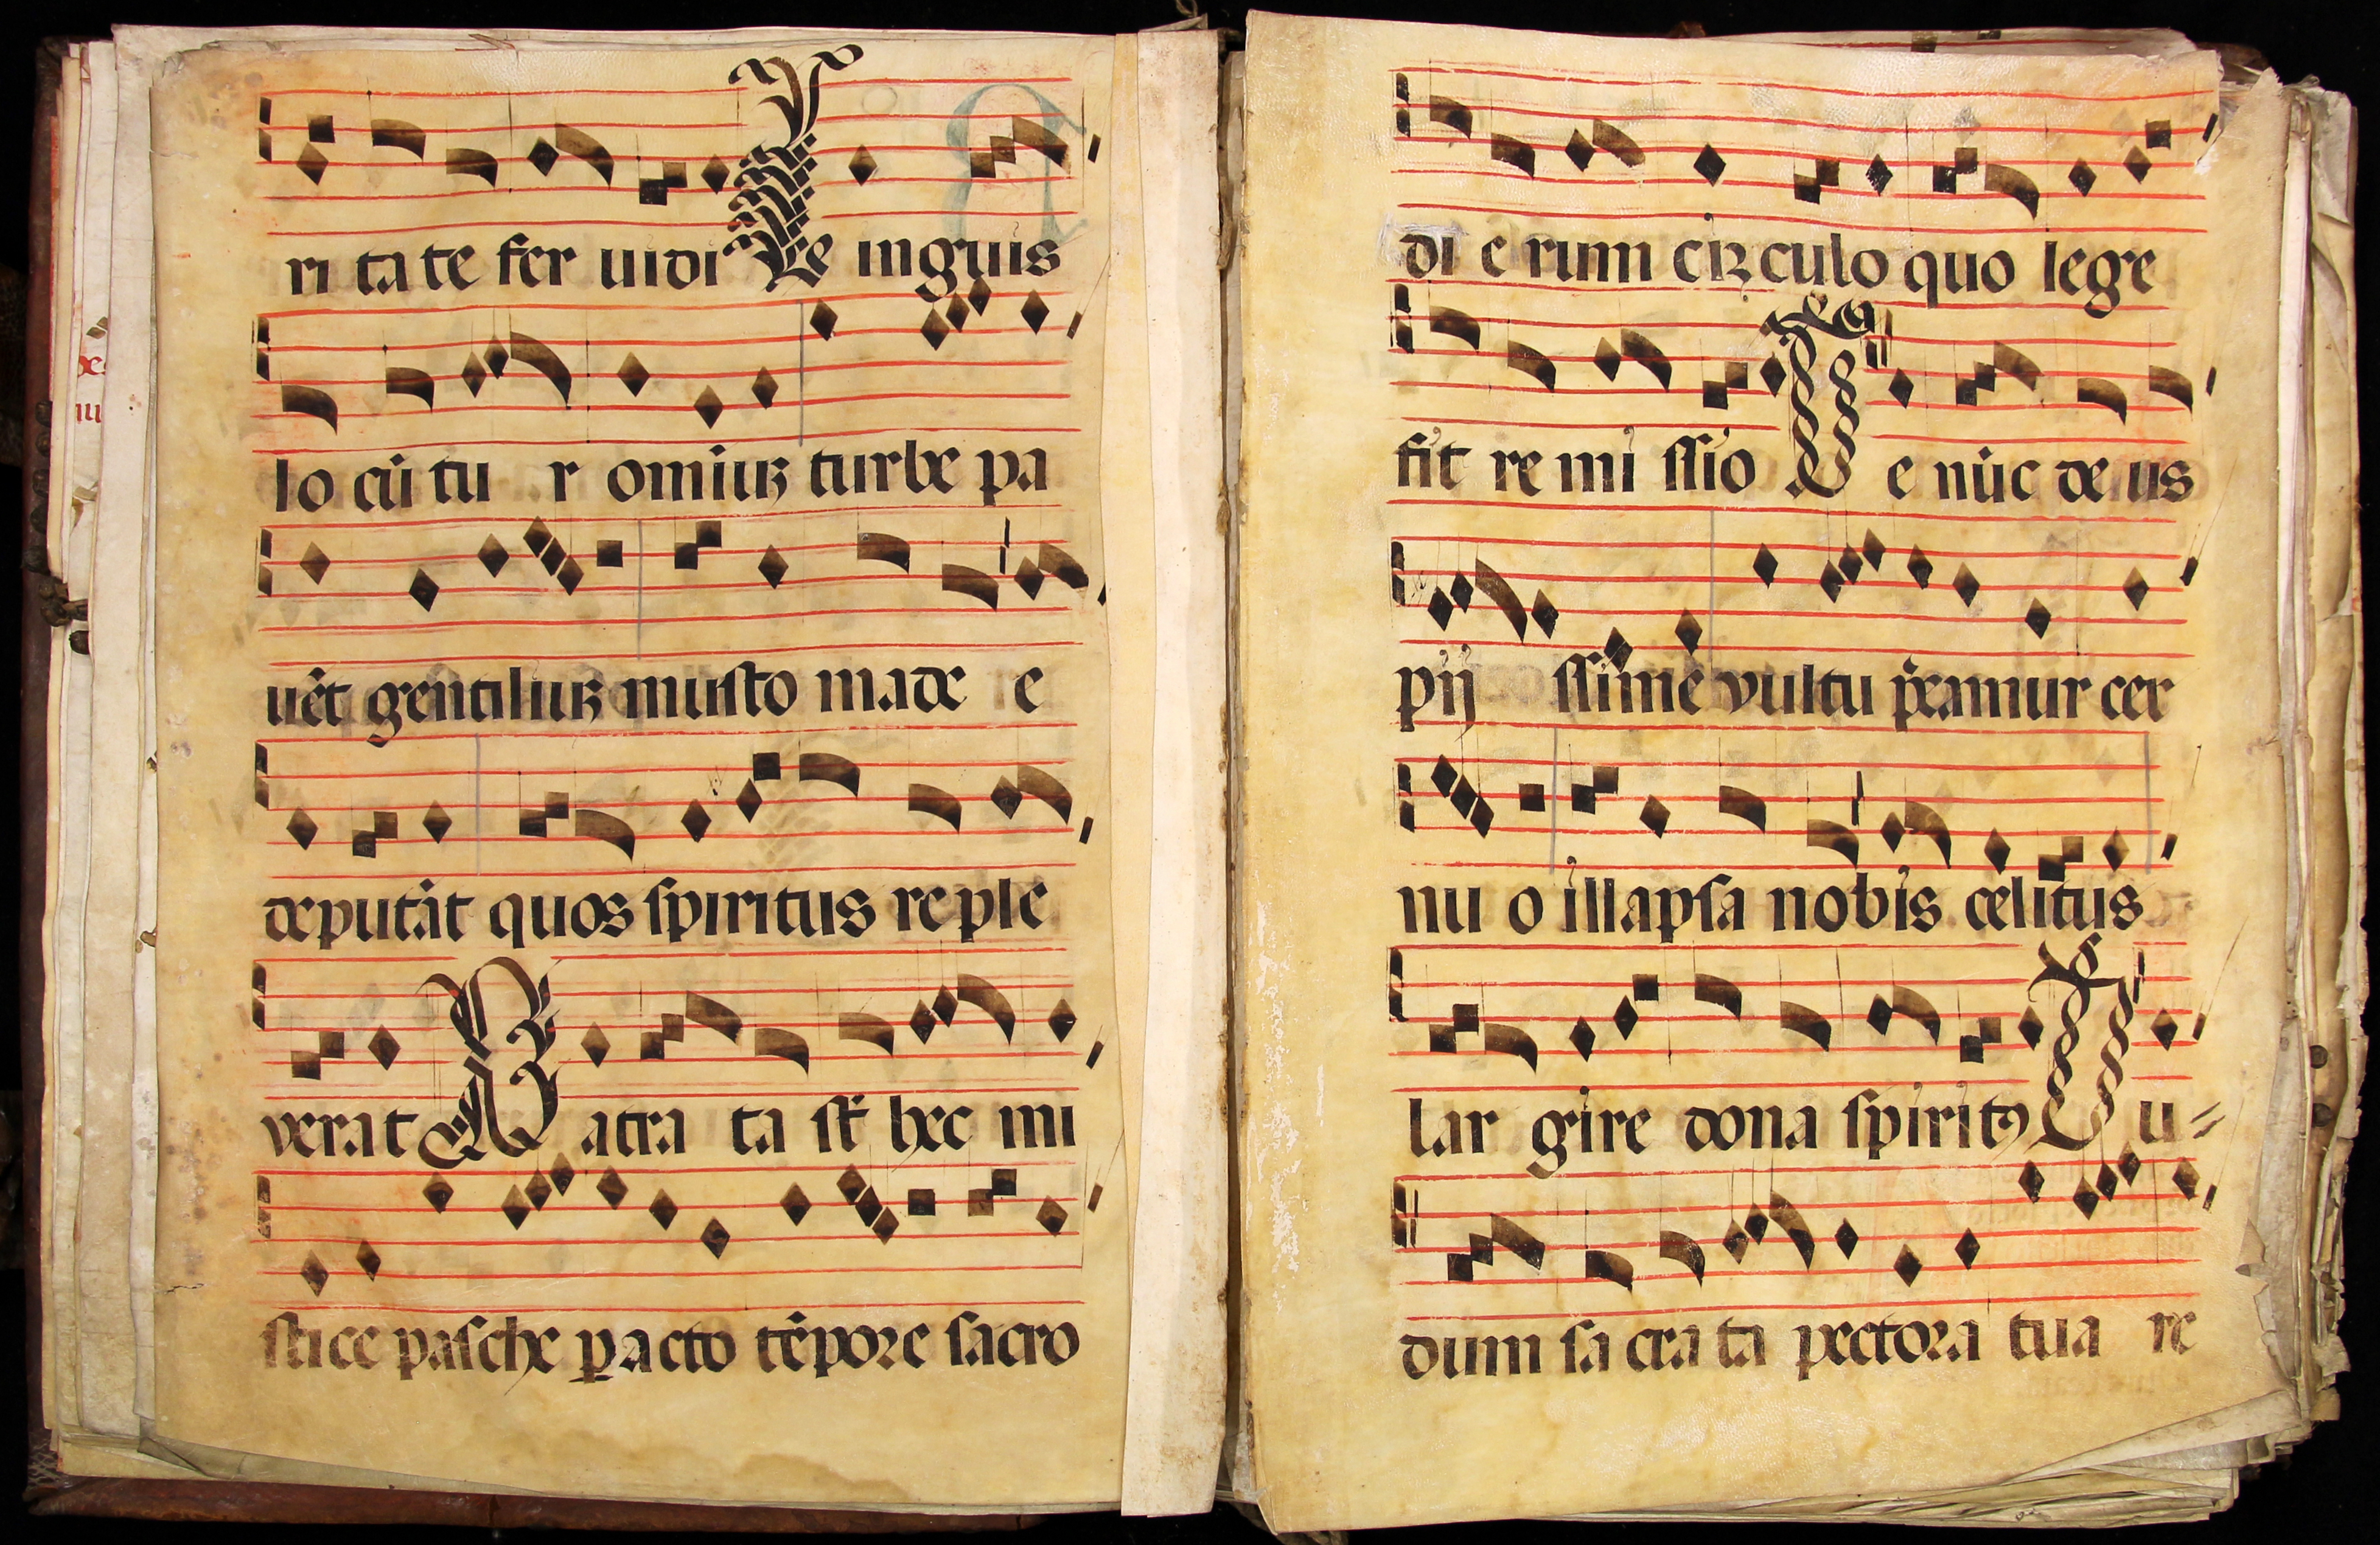 ri ta te fer uidi Le inguis
lo cũ tu r omiuꝫ turbe pa
uẽt gentiliuꝫ musto made e
deputãt quos spiritus reple
verat Patra ta st hec mi
stice pasche ꝑacto tẽpore sacro
di e rum ciꝛculo quo lege
fit re mi ssio De nũc de us
pij ssime vultu p̃camur cer
nu o illapsa nobis celitus
lar gire dona spiritꝰ Du⸗
dum sa cra ta pectoꝛa tua re